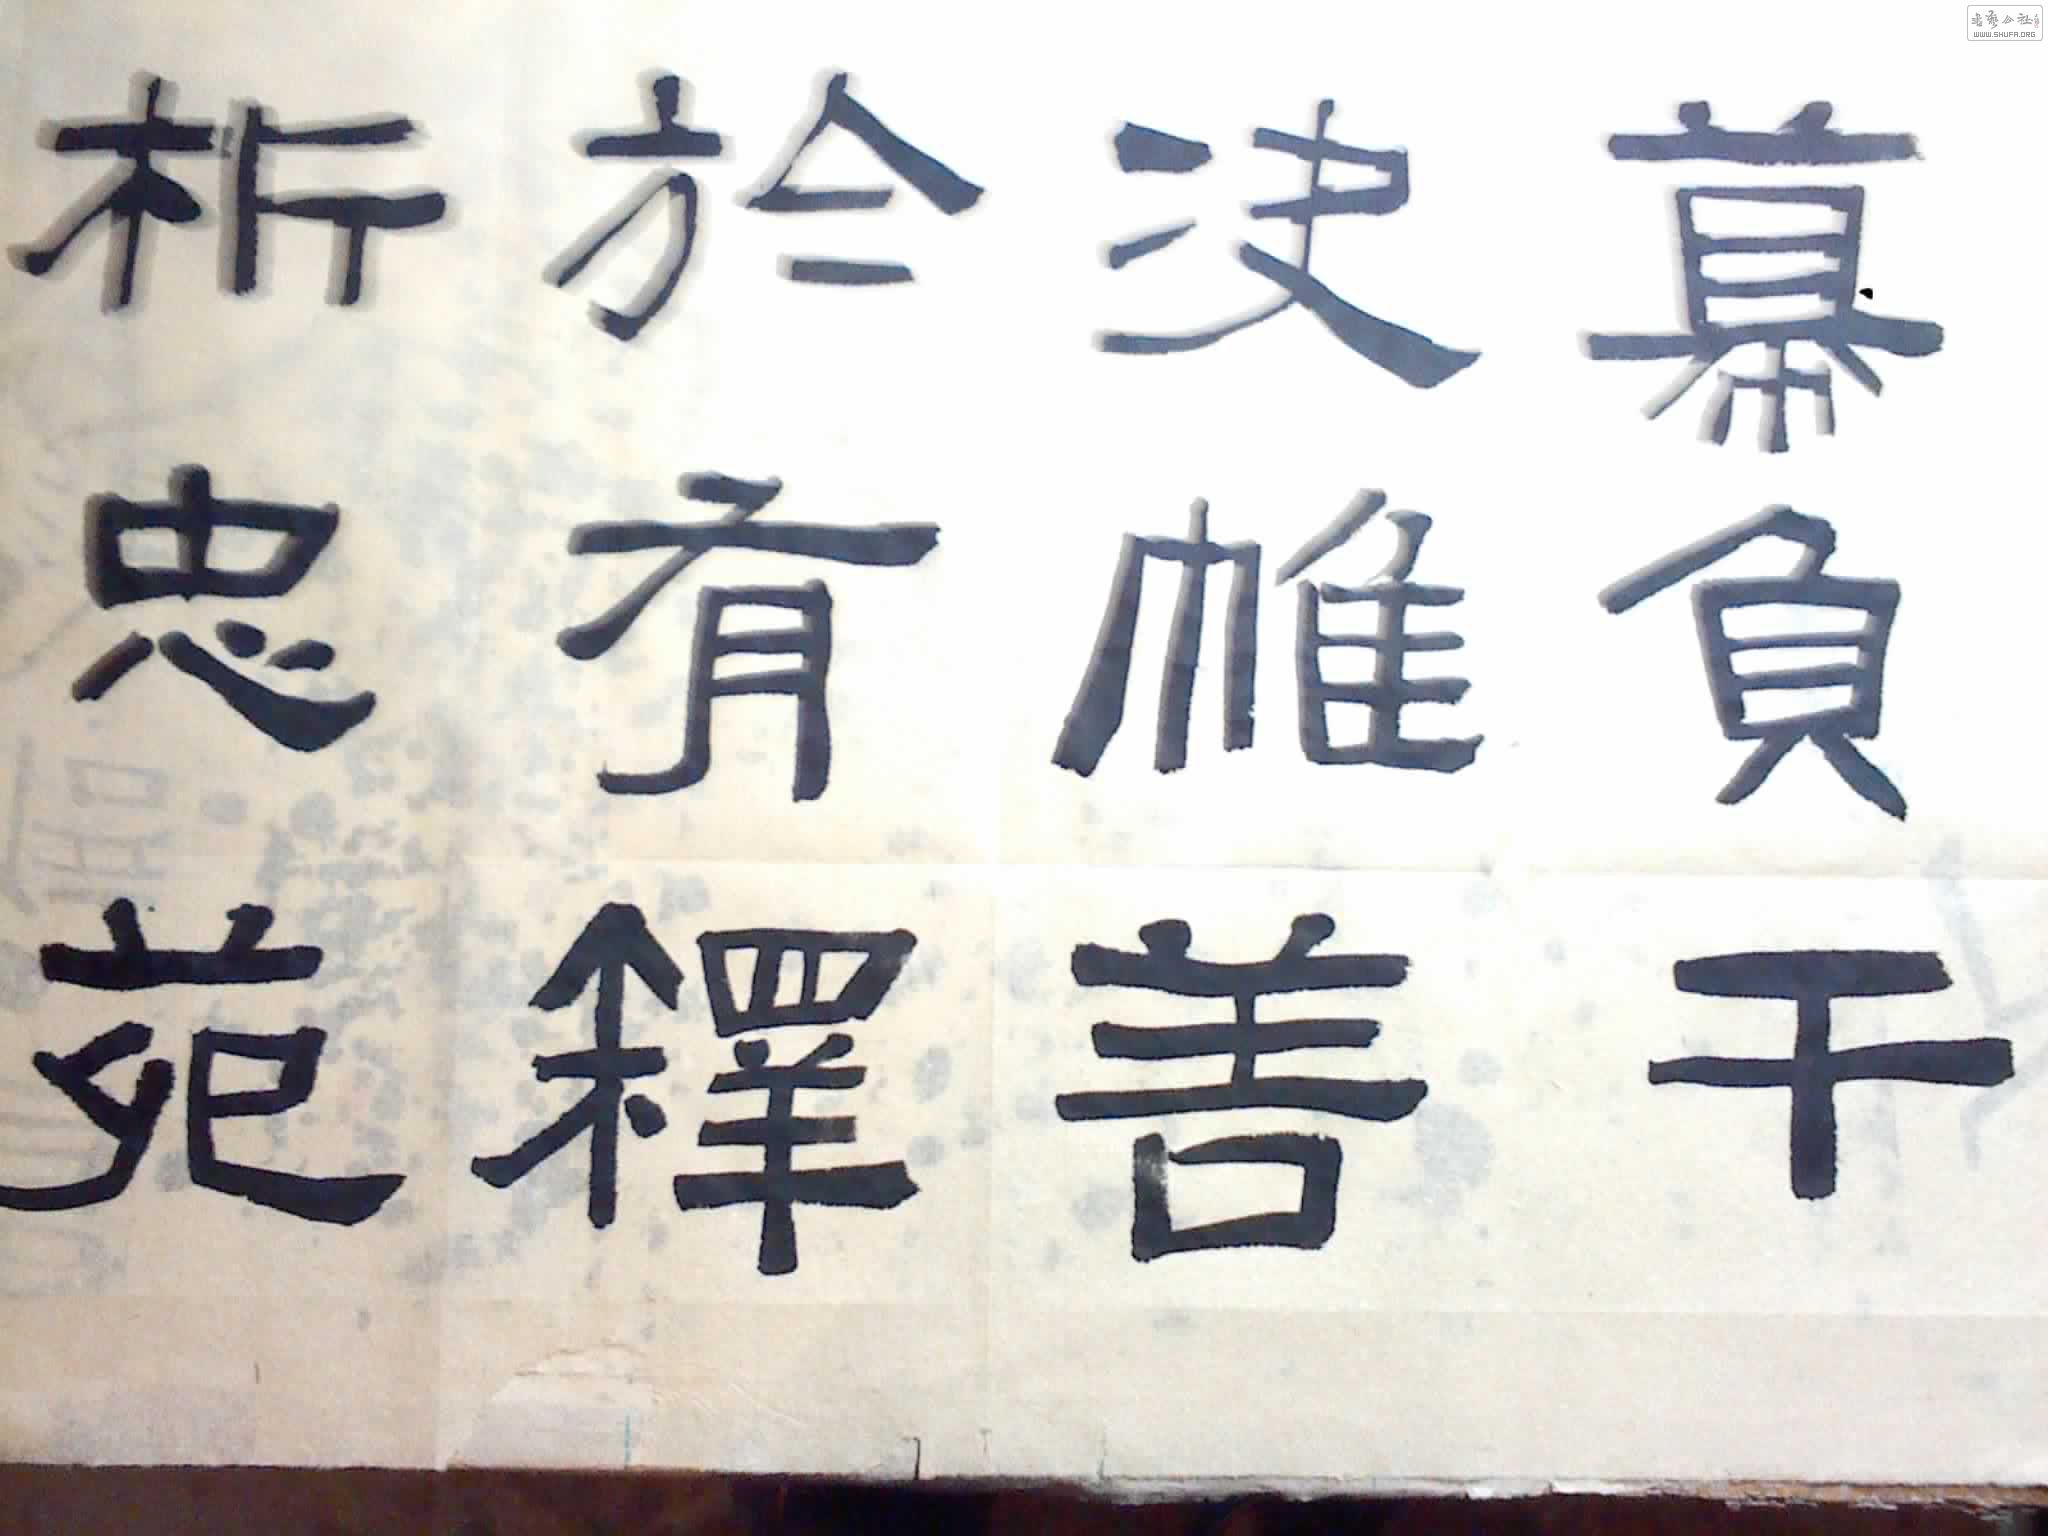 幕負干
決帷善
於有釋
析忠苑
书艺公社
WWW.SHUFA.ORG